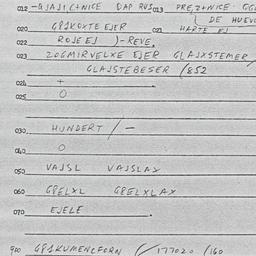 012 -GJAJI,C+NICE DAP RUS 013 PRE,Z+NICE.
DE HUEVO
020 GPJKOXTE EJER 021 HARTE EJ
022 ROJEEJ )-REVE.
023 ZOGMIRVELXE EJER GLAJXSTEMER
GLAJSTEBESER /852
024 +
025 0
030 HUNDERT /-
040 0
050 VAJSL VAJSLAX
060 GPELXL GPELXLAX
070 EJELE
900 GPJKUMENCFORN /177020 /160